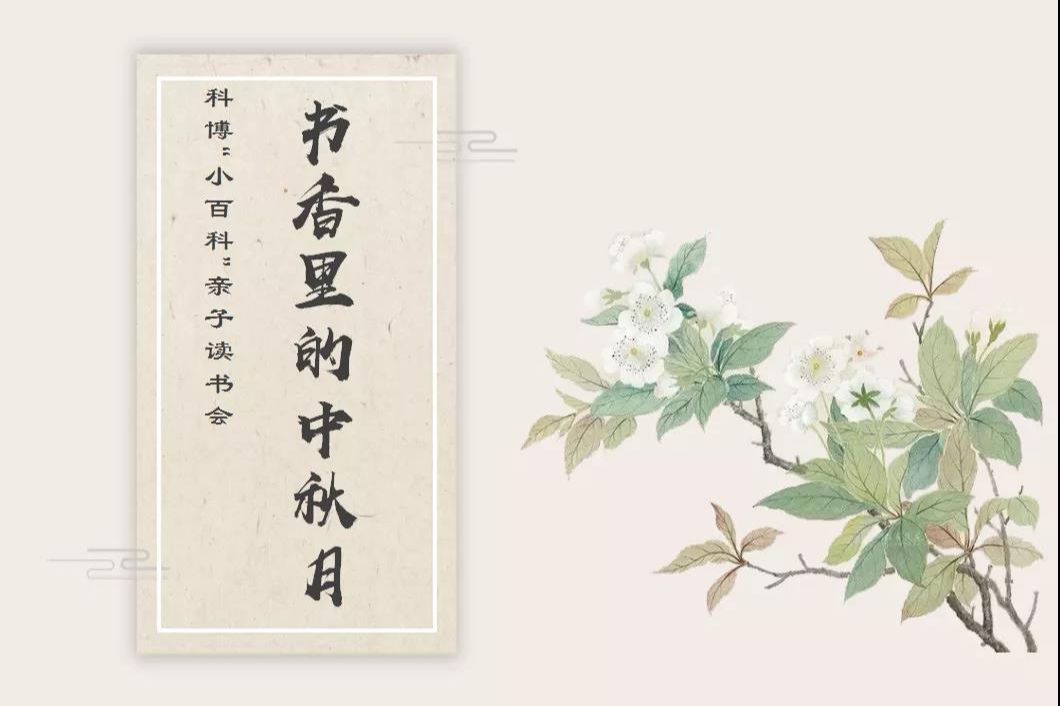 书香里的中秋月
科博“小百科”亲子读书会